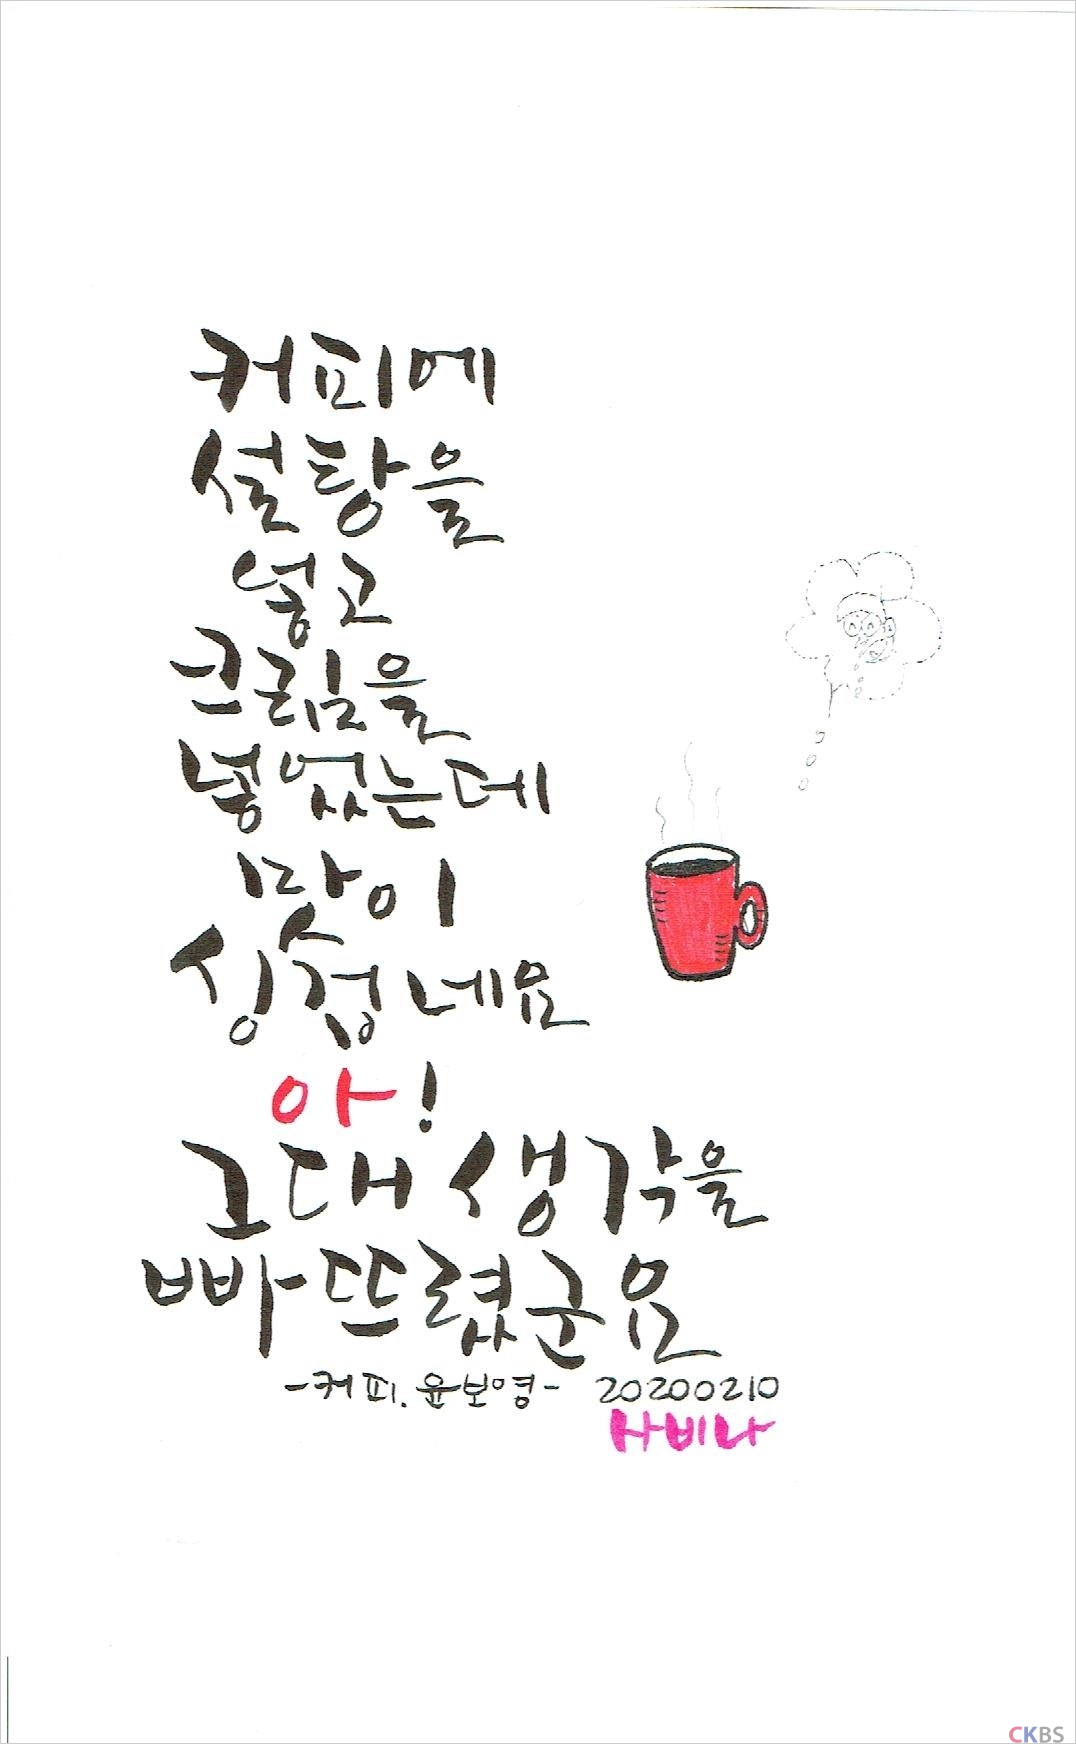 커피에
설탕을
넣고
크림을
넣었는데
맛이
싱겁네요
아!
그대 생각을
빠뜨렸군요
-커피. 윤보영- 20200210
사비나
CKBS